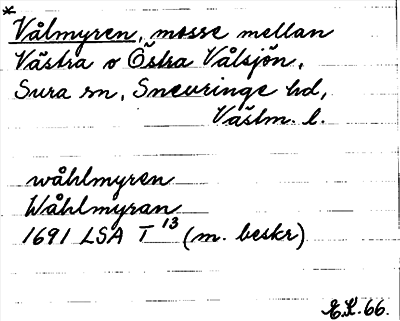 *
Vålmyren, mosse mellan
Västra o Östra Vålsjön,
Sura sn, Snevringe hd,
Västm. l.
wåhlmyren
Wåhlmyran
1691 LSA T 13 (m. beskr)
E.K. 66.